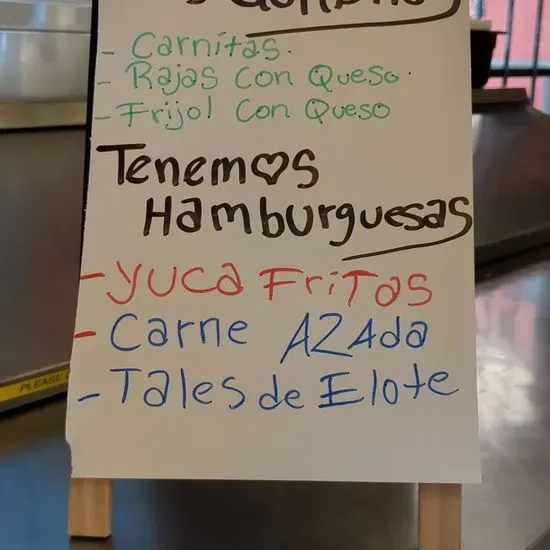 - Carnitas.
- Rajas con Queso.
- Frijol con Queso
Tenemos
Hamburguesas
- Yuca Fritas
- Carne AZAda
- Tales de Elote
PLEASE